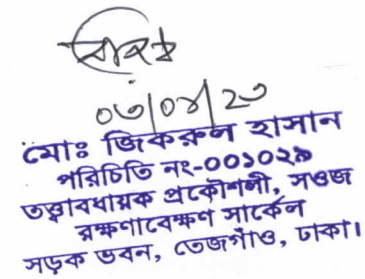 ০৩/০৪/২৩
মোঃ জিকরুল হাসান
পরিচিতি নং-০০১০২৯
তত্ত্বাবধায়ক প্রকৌশলী, সওজ
রক্ষণাবেক্ষণ সার্কেল
সড়ক ভবন, তেজগাঁও, ঢাকা।